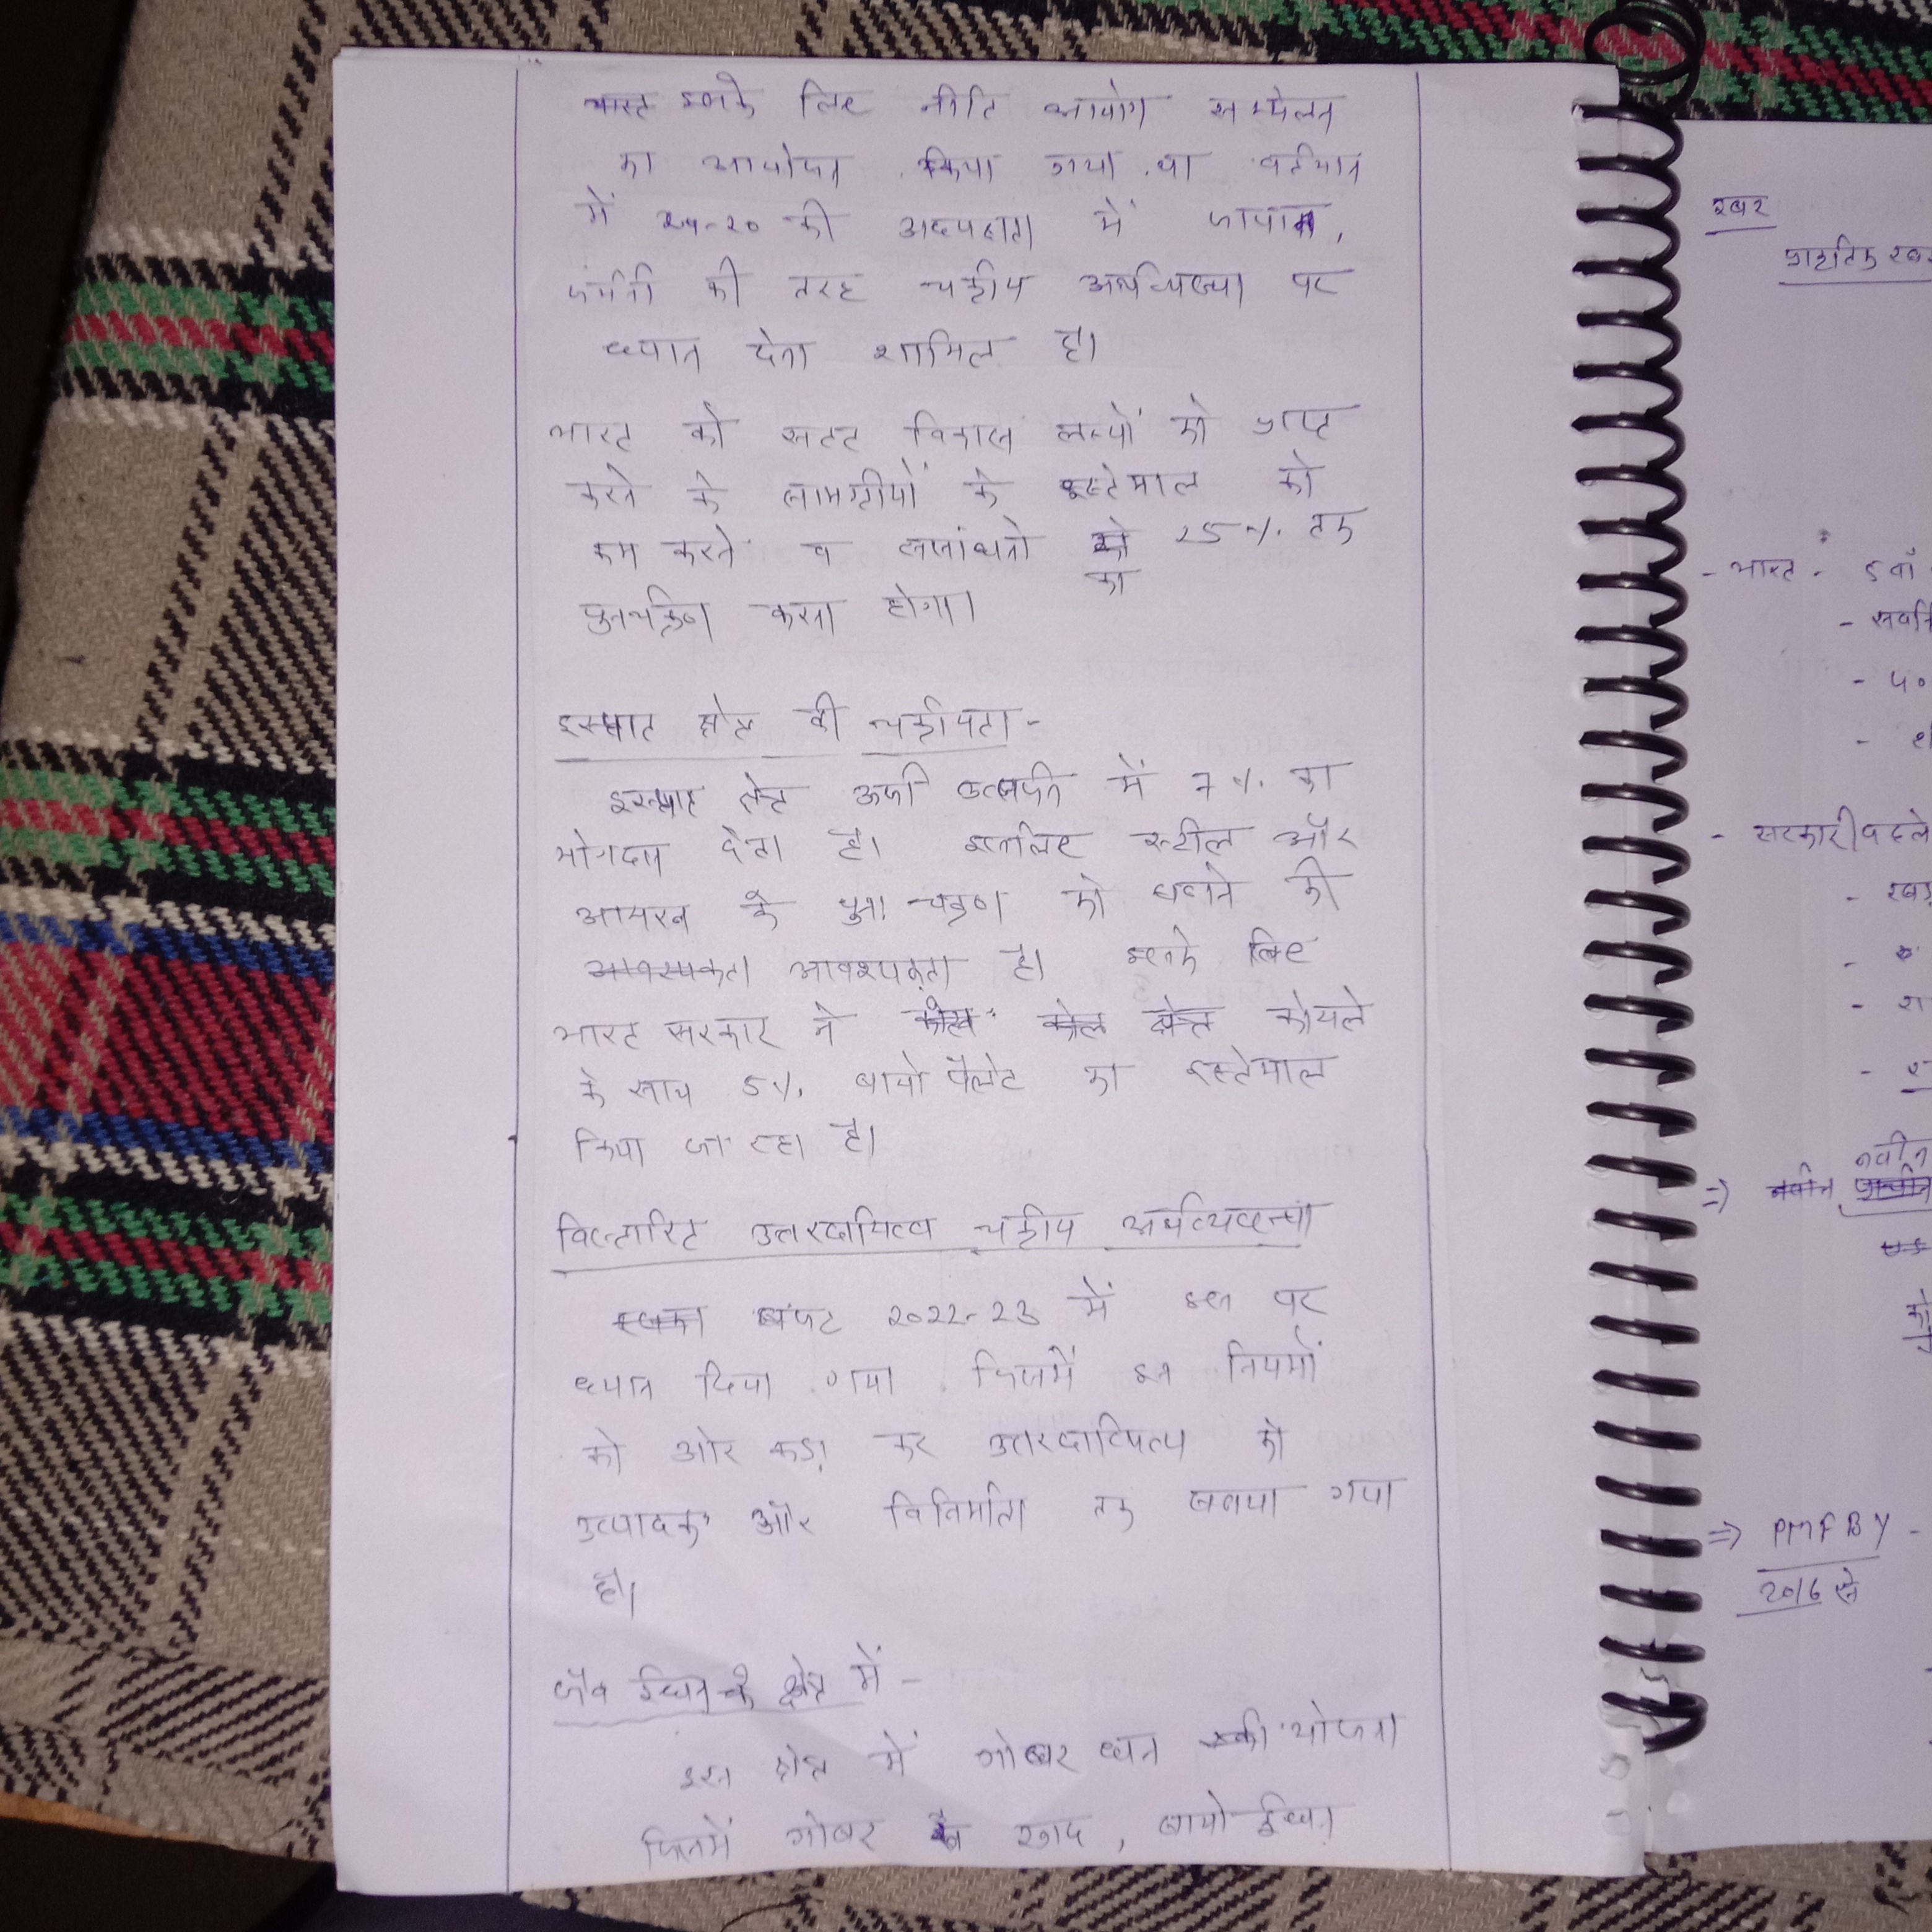 भारत इसके लिए नीति आयोग सम्मेलन
का आयोजन किया गया था वर्तमान
में की अध्यक्षता में जापान,
जर्मनी की तरह चक्रीय अर्थव्यवस्था पर
ध्यान देना शामिल है।
भारत को सतत विकास लक्ष्यों को प्राप्त
करने के सामग्रीयों के इस्तेमाल को
कम करने व संसाधनो को 25% तक
का
पुनर्चक्रिण करना होगा।
इस्पात क्षेत्र की चक्रीयता -
इस्पात क्षेत्र ऊर्जा उत्सर्जन में 7% का
योगदान देता है। इसलिए स्टील और
आयरन के पुनः चक्रण को बढाने की
आवश्यकता आवश्यकता है। इसके लिए
भारत सरकार ने कोल क्षेत्र कोयले
के साथ 5% बायो पैलेट का इस्तेमाल
किया जा रहा है।
विस्तारित उत्तरदायित्व चक्रीय अर्थव्यवस्था
बजट 2022-23 में इस पर
ध्यान दिया गया जिसमें इन नियमों
को ओर कड़ा कर उत्तरदायित्व को
उत्पादक और विनिर्माता तक बनाया गया
है।
जैव ईंधन के क्षेत्र में -
इस क्षेत्र में गोबर धन की योजना
जिसमें गोबर से खाद, बायो ईंधन
रबर
प्राकृतिक रबर
- भारत - 5वाँ
- 40
- सरकारी पहले
- रबड़
=> नवीन
नवीन
=> PMFBY -
2016 से